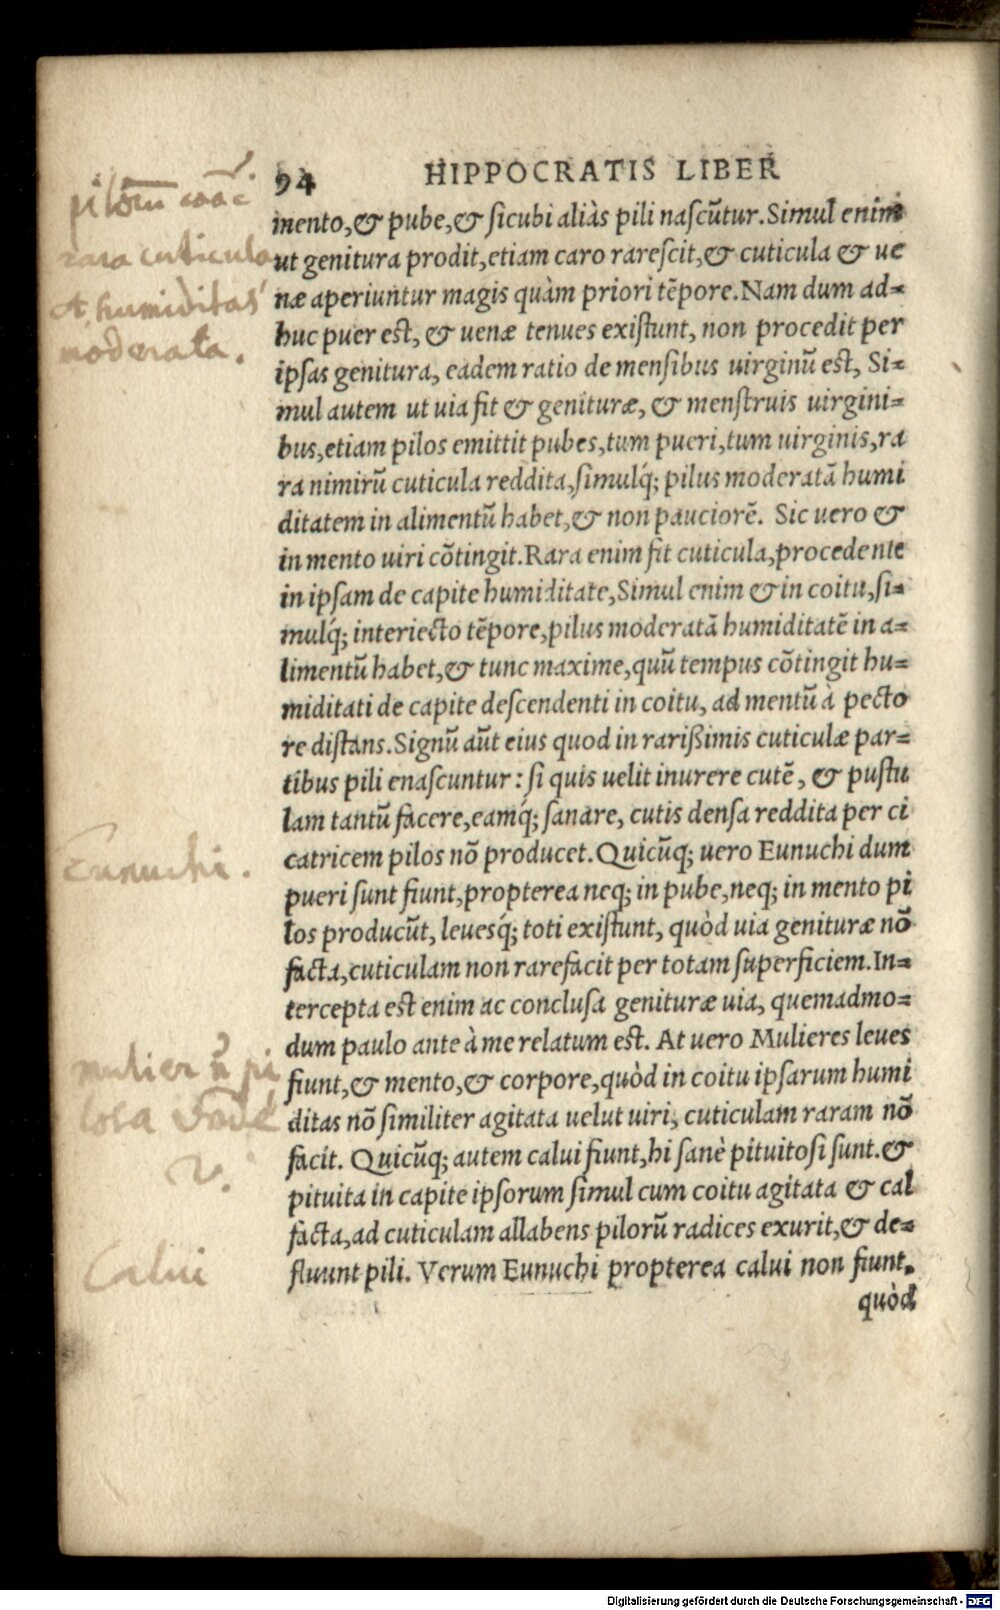 94 HIPPOCRATIS LIBER
mento,& pube,& sicubi aliàs pili nascũtur.Simul enim
ut genitura prodit,etiam caro rarescit,& cuticula & ue
næ aperiuntur magis quàm priori tẽpore.Nam dum ad=
huc puer est, & uenæ tenues existunt, non procedit per
ipsas genitura, eadem ratio de mensibus uirginũ est, Si=
mul autem ut uia fit & genituræ, & menstruis uirgini=
bus,etiam pilos emittit pubes,tum pueri,tum uirginis,ra
ra nimirũ cuticula reddita,simulq́; pilus moderatã humi
ditatem in alimentũ habet,& non pauciorẽ. Sic uero &
in mento uiri cõtingit.Rara enim fit cuticula,procedente
in ipsam de capite humiditate,Simul enim & in coitu,si=
mulq́; interiecto tẽpore,pilus moderatã humiditatẽ in a=
limentũ habet,& tunc maxime,quũ tempus cõtingit hu=
miditati de capite descendenti in coitu, ad mentũ à pecto
re distans.Signũ aũt eius quod in rarißimis cuticulæ par=
tibus pili enascuntur : si quis uelit inurere cutẽ, & pustu
lam tantũ facere,eamq́; sanare, cutis densa reddita per ci
catricem pilos nõ producet.Quicũq; uero Eunuchi dum
pueri sunt fiunt,propterea neq; in pube,neq; in mento pi
los producũt, leuesq́; toti existunt, quòd uia genituræ nõ
facta,cuticulam non rarefacit per totam superficiem.In=
tercepta est enim ac conclusa genituræ uia, quemadmo=
dum paulo ante à me relatum est. At uero Mulieres leues
fiunt,& mento,& corpore,quòd in coitu ipsarum humi
ditas nõ similiter agitata uelut uiri, cuticulam raram nõ
facit. Quicũq; autem calui fiunt,hi sanè pituitosi sunt.&
pituita in capite ipsorum simul cum coitu agitata & cal
facta,ad cuticulam allabens pilorũ radices exurit,& de=
fluunt pili. Verum Eunuchi propterea calui non fiunt,
quòd
rara cuticula
et humiditas
moderata.
Eunuchi.
mulier
Calui
Digitalisierung gefördert durch die Deutsche Forschungsgemeinschaft - DFG